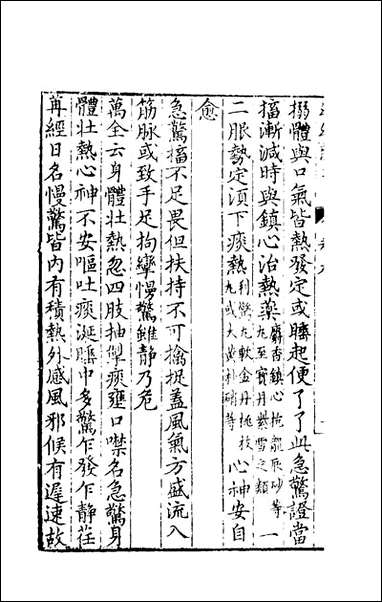 搦體與口氣皆熱發定或睡起便了了此急驚證當
搐漸減時與鎮心治熱藥麝香鎮心丸龍辰砂等丸至寶丹紫雪之類一
二服勢定須下痰熱利驚丸軟金丹桃枝丸或大黃朴硝等心神安自
愈
急驚搐不足畏但扶持不可擒捉蓋風氣方盛流入
筋脉或致手足拘攣慢驚雖靜乃危
萬全云身體壯熱忽四肢抽掣痰壅口噤名急驚身
體壯熱心神不安嘔吐痰涎睡中多驚乍發乍靜荏
苒經日名慢驚皆内有積熱外感風邪候有遲速故